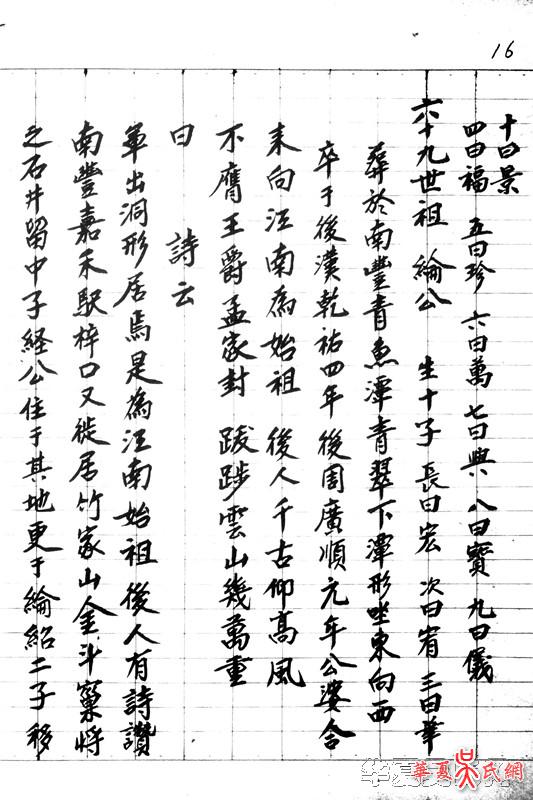 16
之石井留中子経公住于其地更于綸紹二子移
南豐嘉禾馭梓口又徙居竹家山金斗窠將
軍出洞形居焉是為江南始祖後人有詩讚
曰 詩云
不膺王爵孟家封 跋涉雲山幾萬重
耒向江南為始祖 後人千古仰高風
卒于後漢乾祐四年後周廣順元年公婆合
葬於南豐青魚潭青翠下潭形坐東向西
六十九世祖 綸公 生十子 長曰宏 次曰宥 三曰華
四曰福 五曰珍 六曰萬 七曰興 八曰寶 九曰儀
十曰景
華夏吳氏網